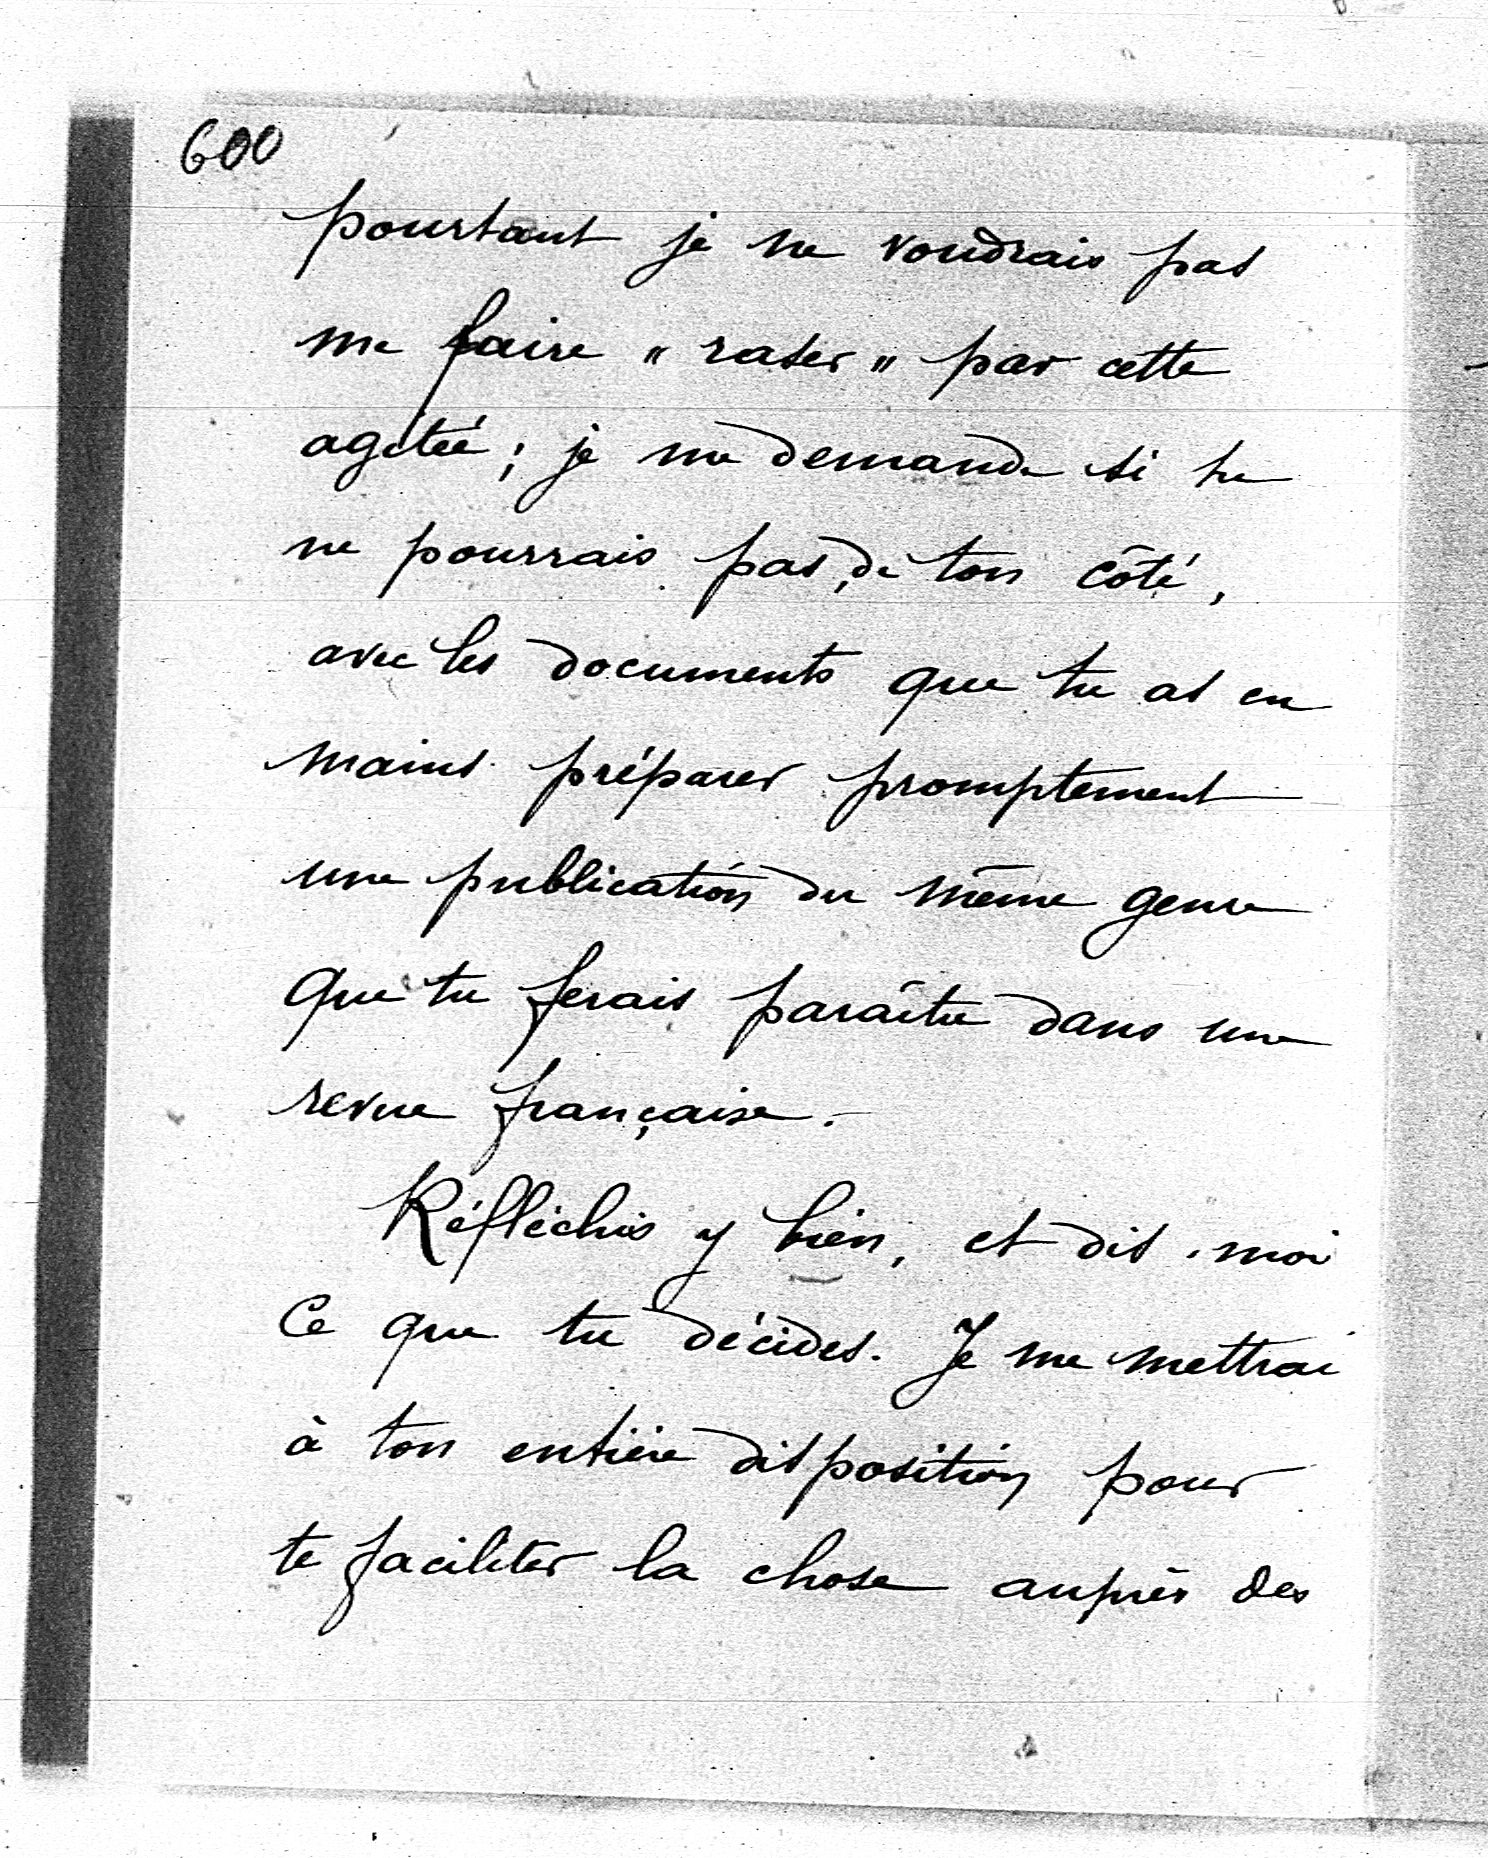 600
pourtant je ne voudrais pas
me faire " raser " par cette
agitée ; je me demande si tu
ne pourrais pas, de ton côté,
avec les documents que tu as en
mains préparer promptement
une publication du même genre
que tu ferais paraître dans une
revue française.
Réfléchis y bien, et dis-moi
ce que tu décides. Je me mettrai
à ton entière disposition pour
te faciliter la chose auprès des